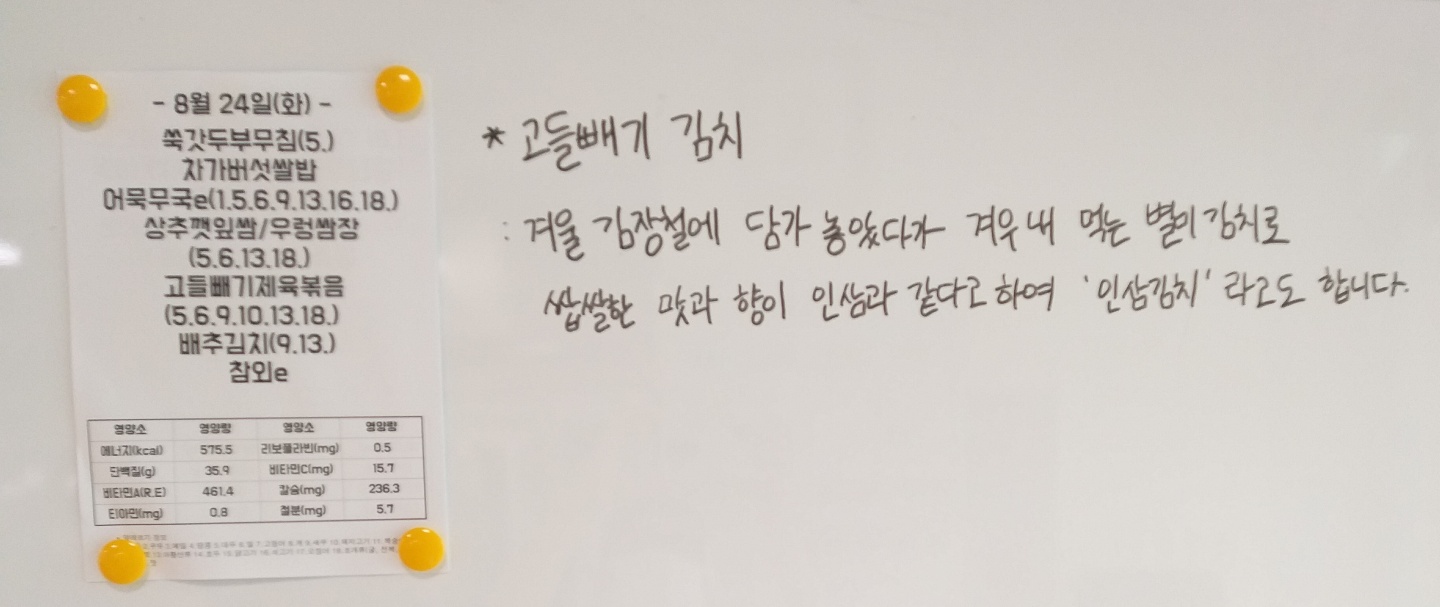 - 8월 24일(화) -
쑥갓두부무침(5.)
차가버섯쌀밥
어묵무국e(1.5.6.9.13.16.18.)
상추깻잎쌈/우렁쌈장
(5.6.13.18.)
고들빼기제육볶음
(5.6.9.10.13.18.)
배추김치(9.13.)
참외e
영양소 영양량 영양소 영양량
에너지(kcal) 575.5 리보플라빈(mg) 0.5
단백질(g) 35.9 비타민C(mg) 15.7
비타민A(R.E) 461.4 칼슘(mg) 236.3
티아민(mg) 0.8 철분(mg) 5.7
* 고들빼기 김치
: 겨울 김장철에 담가 놓았다가 겨우내 먹는 별미김치로
쌉쌀한 맛과 향이 인삼과 같다고 하여 '인삼김치' 라고도 합니다.